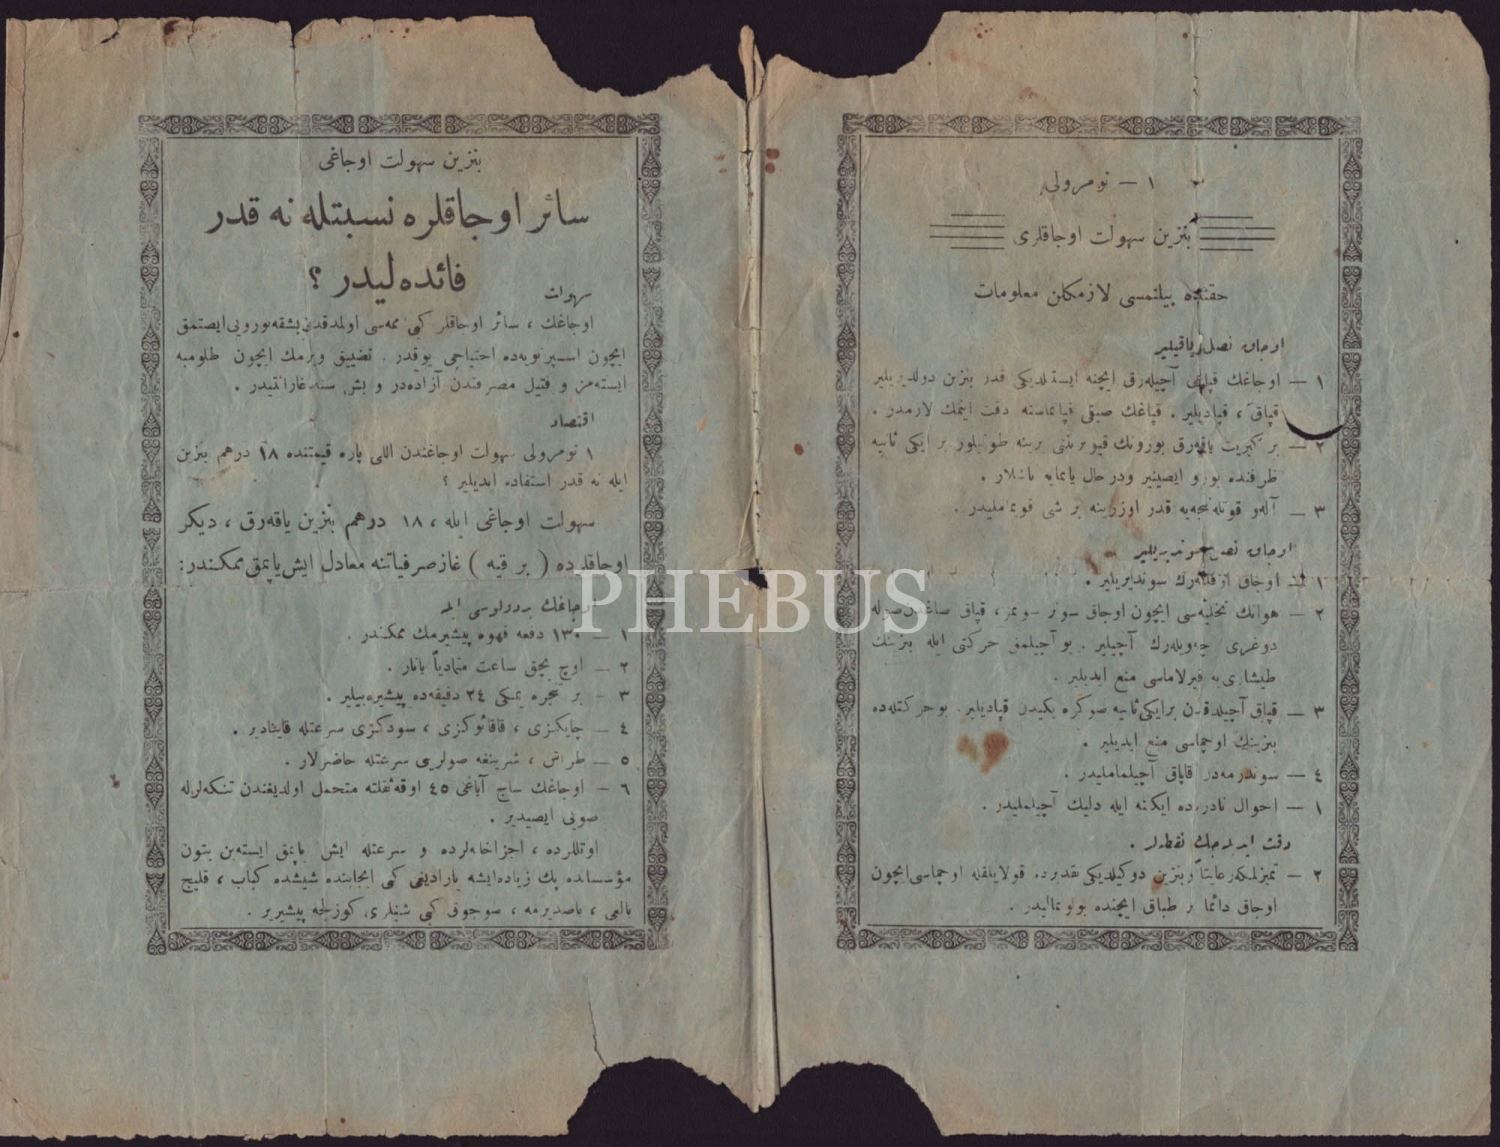 ١ — نومرولى
بنزين سهولت اوجاقلرى
حقنده بيلنمسى لازمكلن معلومات
اوجاق نصل ياقيلير
١ — اوجاغك قپاغى آچيله‌رق ايچنه ايستلديكى قدر بنزين دولديريلير
قپاق ، قپاديلير . قپاغك صيقى قپانماسنه دقت ايتمك لازمدر .
٢ — بر كبريت ياقه‌رق بورونك برينه طوتيلور بر ايكى ثانيه
ظرفنده بورو ايصينير ودرحال يانمايه باشلار .
٣ — آلو قوتلنجه‌يه قدر اوزرينه بر شى قويماملیدر .
اوجاق نصل سوندیریلير
١ — اوجاق سونديريلير .
٢ — هوانك تخليه‌سى ايچون اوجاق سونر سونمز ، قپاق صاغدن صوله
دوغرى چويله‌رك آچيلير . بو آچيلمق حركتى ايله بنزينك
طيشارى‌يه فيرلاماسى منع ايديلير .
٣ — قپاق آچيلدقدن برايكى ثانيه صوكره يكيدن قپاديلير . بو حركتله‌ده
بنزينك اوچماسى منع ايديلير .
٤ — سوندرمه‌دن قاپاق آچيلماملیدر .
١ — احوال نادره‌ده ايكنه ايله دليك آچيلمليدر .
دقت ايديله‌جك نقطه‌لر .
٢ — تميزلكه رعايتاً وبنزين دوكيلديكى تقديرده قولايلقله اوچماسى ايچون
اوجاق دائما بر طباق ايچنده بولونماليدر .
بنزين سهولت اوجاغى
سائر اوجاقلره نسبتله نه قدر
فائده ليدر ؟
سهولت
اوجاغك ، سائر اوجاقلر كبى ممه‌سى اولمدقدن بشقه بورويى ايصتمق
ايچون اسپيرتويه‌ده احتياجى يوقدر . تضييق ويرمك ايچون طلومبه
ايسته‌مز و فتيل مصرفندن آزاده‌در و بش سنه غارانتيدر .
اقتصاد
١ نومرولى سهولت اوجاغندن اللى پاره قيمتنده ١٨ درهم بنزين
ايله نه قدر استفاده ايديلير ؟
سهولت اوجاغى ايله ، ١٨ درهم بنزين ياقه‌رق ، ديكر
اوجاقلرده ( بر قيه ) غاز صرفياتنه معادل ايش ياپمق ممكندر :
اوجاغك بر دولوسى ايله
١ — ١٣٠ دفعه قهوه پيشيرمك ممكندر .
٢ — اوچ بچق ساعت متمادياً يانار .
٣ — بر تنجره يمكى ٢٤ دقيقه‌ده پيشيره‌بيلير .
٤ — چايكزى ، قاقائوكزى ، سودكزى سرعتله قاينادير .
٥ — طراش ، شرينغه صولرينى سرعتله حاضرلار .
٦ — اوجاغك ساج آياغى ٤٥ اوقه ثقلته متحمل اولديغندن تنكه‌لرله
صويى ايصيدير .
اوتللرده ، اجزاخانه‌لرده و سرعتله ايش ياپمق ايسته‌ين بتون
مؤسساتده پك زياده ايشه يارادیغى كبى ايجابنده شيشده كباب ، قليج
بالغى ، باصديرمه ، سوجوق كبى شيئلرى كوزلجه پيشيرير .
PHEBUS